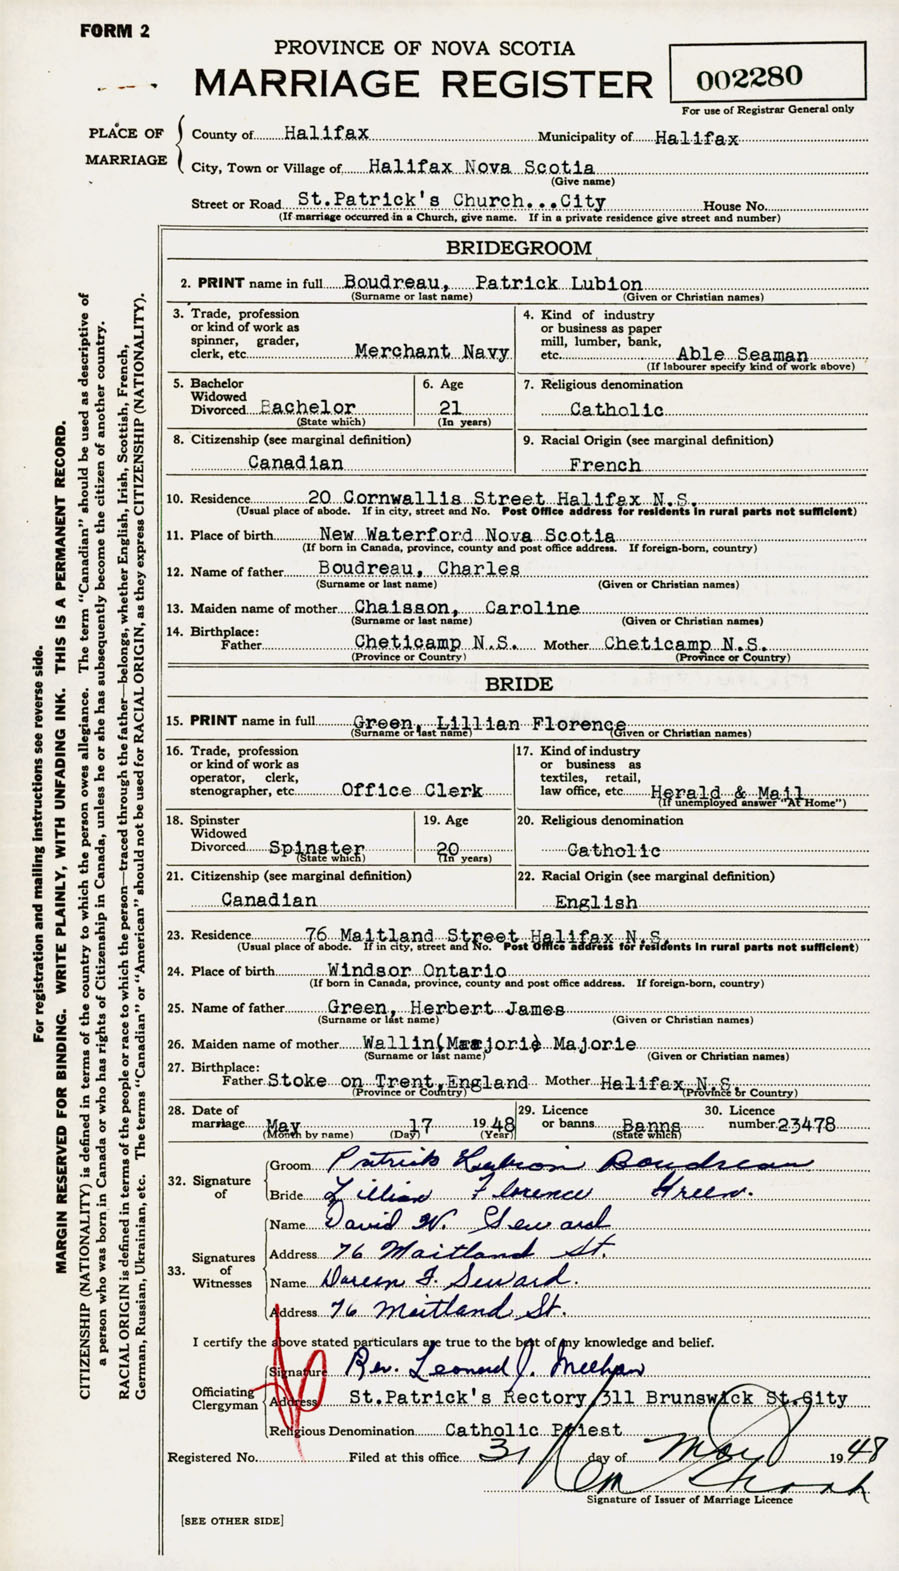 FORM 2
PROVINCE OF NOVA SCOTIA
MARRIAGE REGISTER
002280
For use of Registrar General only
PLACE OF MARRIAGE
County of Halifax Municipality of Halifax
City, Town or Village of Halifax Nova Scotia
(Give name)
Street or Road St.Patrick's Church...City House No.
(If marriage occurred in a Church, give name. If in a private residence give street and number)
BRIDEGROOM
2. PRINT name in full Boudreau, Patrick Lubion
(Surname or last name) (Given or Christian names)
3. Trade, profession or kind of work as spinner, grader, clerk, etc. Merchant Navy
4. Kind of industry or business as paper mill, lumber, bank, etc. Able Seaman
(If labourer specify kind of work above)
5. Bachelor Widowed Divorced Bachelor
(State which)
6. Age 21
(In years)
7. Religious denomination Catholic
8. Citizenship (see marginal definition) Canadian
9. Racial Origin (see marginal definition) French
10. Residence 20 Cornwallis Street Halifax N.S.
(Usual place of abode. If in city, street and No. Post Office address for residents in rural parts not sufficient)
11. Place of birth New Waterford Nova Scotia
(If born in Canada, province, county and post office address. If foreign-born, country)
12. Name of father Boudreau, Charles
(Surname or last name) (Given or Christian names)
13. Maiden name of mother Chaisson, Caroline
(Surname or last name) (Given or Christian names)
14. Birthplace:
Father Cheticamp N.S. Mother Cheticamp N.S.
(Province or Country) (Province or Country)
BRIDE
15. PRINT name in full Green, Lillian Florence
(Surname or last name) (Given or Christian names)
16. Trade, profession or kind of work as operator, clerk, stenographer, etc. Office Clerk
17. Kind of industry or business as textiles, retail, law office, etc. Herald & Mail
(If unemployed answer "At Home")
18. Spinster Widowed Divorced Spinster
(State which)
19. Age 20
(In years)
20. Religious denomination Catholic
21. Citizenship (see marginal definition) Canadian
22. Racial Origin (see marginal definition) English
23. Residence 76 Maitland Street Halifax N.S.
(Usual place of abode. If in city, street and No. Post Office address for residents in rural parts not sufficient)
24. Place of birth Windsor Ontario
(If born in Canada, province, county and post office address. If foreign-born, country)
25. Name of father Green, Herbert James
(Surname or last name) (Given or Christian names)
26. Maiden name of mother Wallin(Marjorie) Majorie
(Surname or last name) (Given or Christian names)
27. Birthplace:
Father Stoke on Trent,England Mother Halifax N.S.
(Province or Country) (Province or Country)
28. Date of marriage May 17 1948
(Month by name) (Day) (Year)
29. Licence or banns Banns
(State which)
30. Licence number 23478
32. Signature of
Groom Patrick Lubion Boudreau
Bride Lillian Florence Green.
33. Signatures of Witnesses
Name David W. Seward
Address 76 Maitland St.
Name Doreen F. Seward.
Address 76 Maitland St.
I certify the above stated particulars are true to the best of my knowledge and belief.
Officiating Clergyman
Signature Rev. Leonard J. Meehan
Address St.Patrick's Rectory 311 Brunswick St.City
Religious Denomination Catholic Priest
Registered No. Filed at this office 31 day of May 1948
Signature of Issuer of Marriage Licence
[SEE OTHER SIDE]
For registration and mailing instructions see reverse side.
MARGIN RESERVED FOR BINDING. WRITE PLAINLY, WITH UNFADING INK. THIS IS A PERMANENT RECORD.
CITIZENSHIP (NATIONALITY) is defined in terms of the country to which the person owes allegiance. The term "Canadian" should be used as descriptive of
a person who was born in Canada or who has rights of Citizenship in Canada, unless he or she has subsequently become the citizen of another country.
RACIAL ORIGIN is defined in terms of the people or race to which the person—traced through the father—belongs, whether English, Irish, Scottish, French,
German, Russian, Ukrainian, etc. The terms "Canadian" or "American" should not be used for RACIAL ORIGIN, as they express CITIZENSHIP (NATIONALITY).